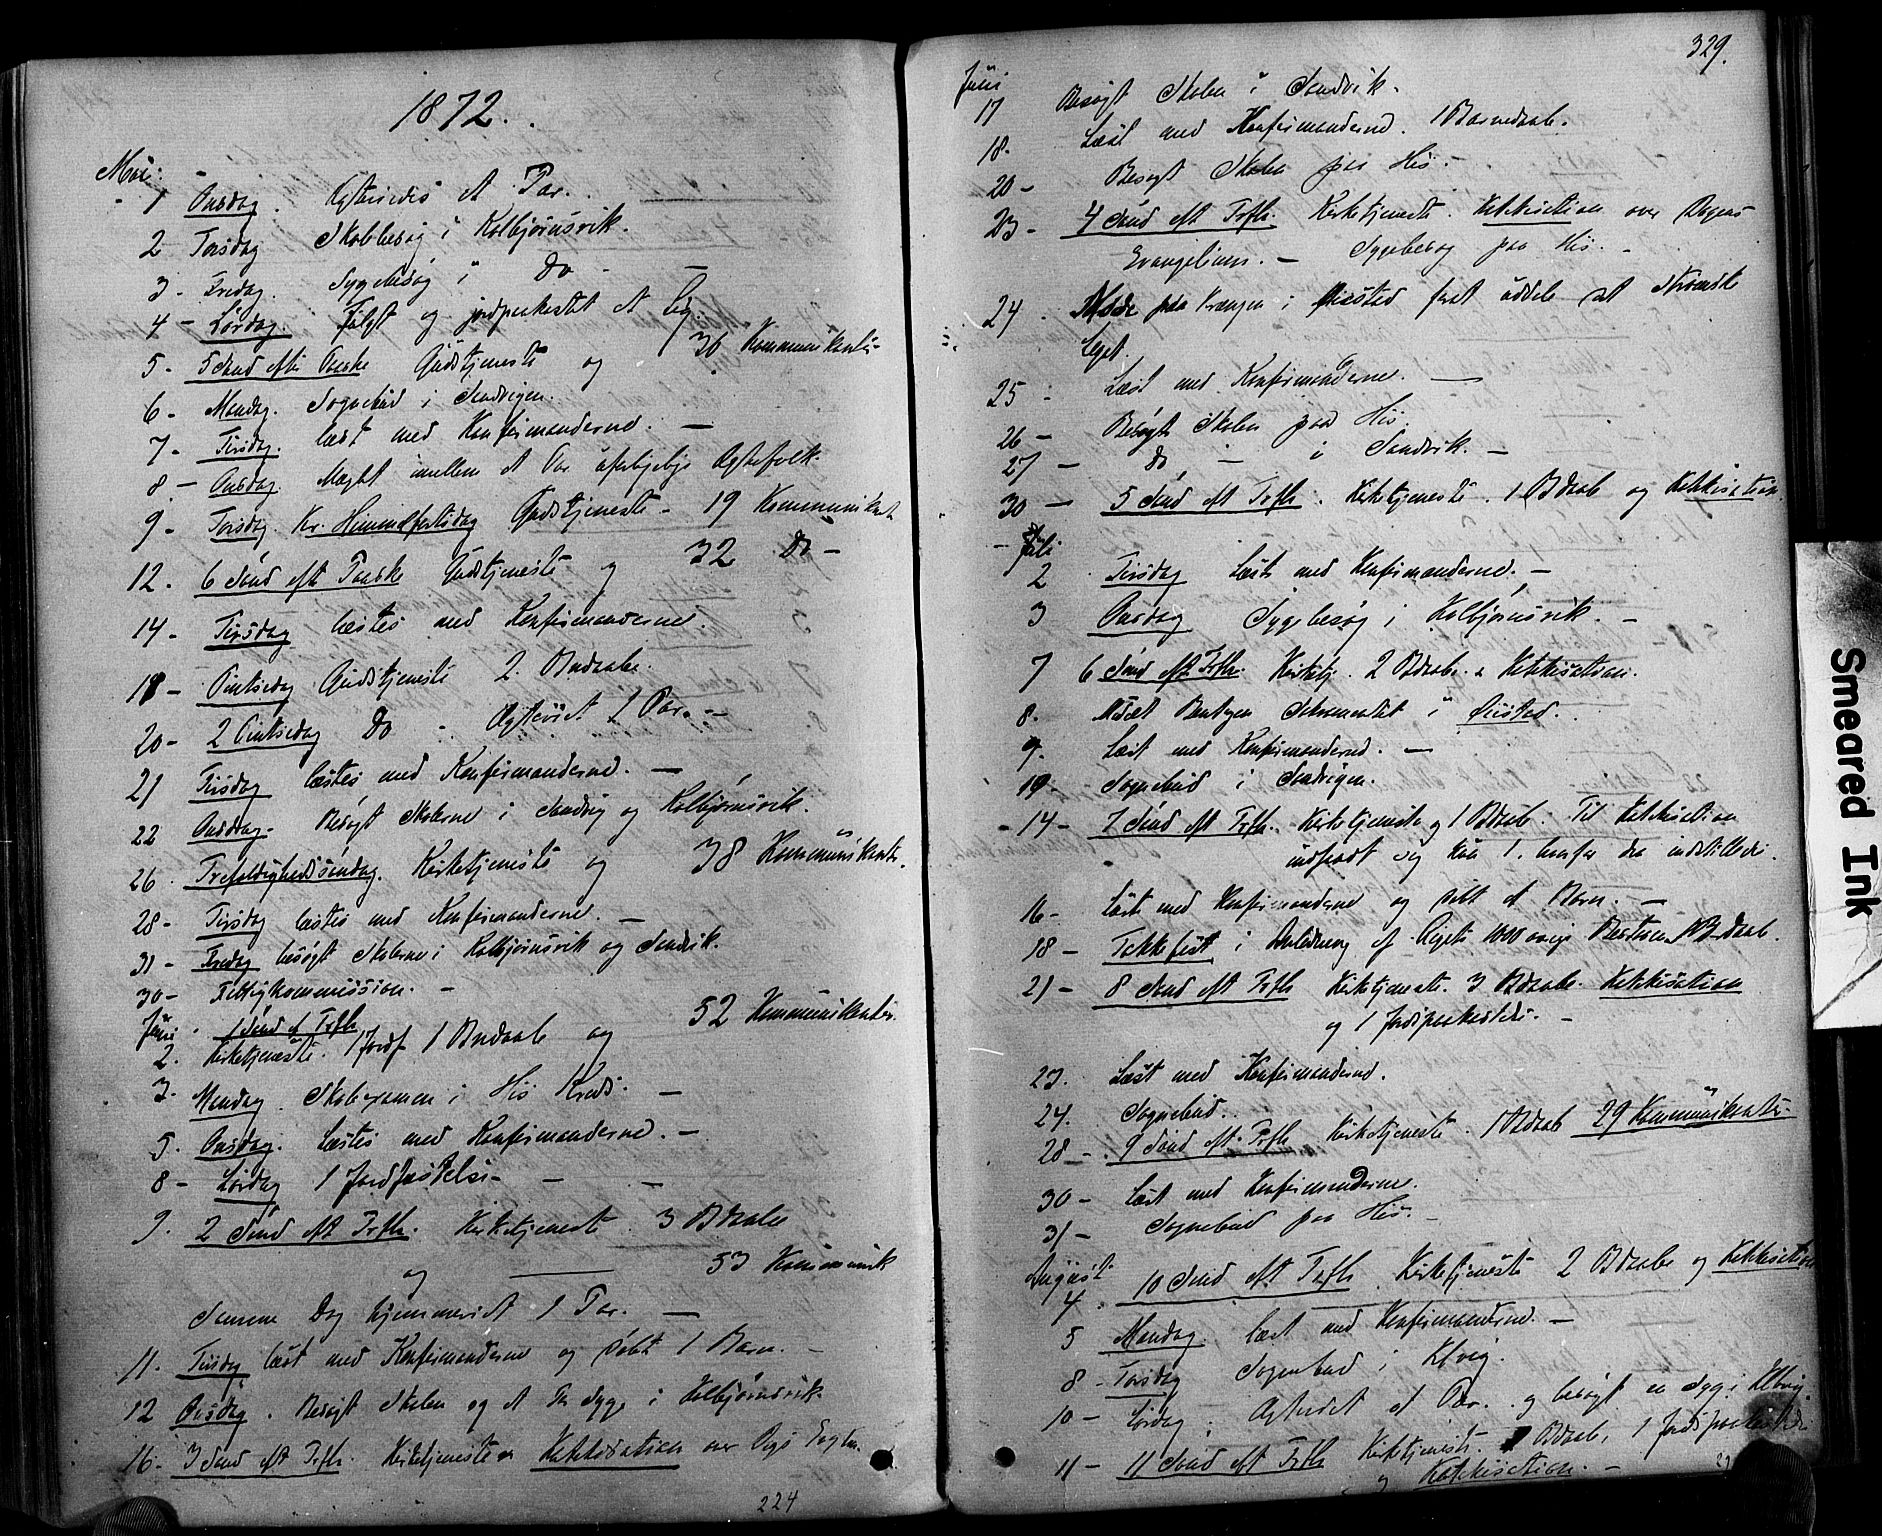 1872.
Mai.
1 Onsdag. Ægteviedes et Par.
2 Torsdag Skolebesøg i Kolbjørnsvik.
3 - Fredag. Sygebesøg i Do -
4 - Lørdag. Fulgt og jordpaakastet et Lig.
5 - 5 Sønd efter Paaske Gudstjeneste og 36 Kommunikanter
6 - Mandag. Sognebud i Sandvigen.
7 - Tirsdag. Læst med Konfirmanderne. -
8 - Onsdag. Mæglet mellem et Par Ægtefolk.
9 - Torsdag. Kr. Himmelfartsdag Gudstjeneste - 19 Kommunikant
12. 6 Sønd eft Paaske Gudstjeneste og 32 Do -
14 - Tirsdag læstes med Konfirmanderne.
19 - Pintsedag Gudstjeneste 2 Bndaabe.
20 - 2 Pintsedag Do - Ægteviet 1 Par. -
21 Tirsdag læstes med Konfirmanderne. -
22 Onsdag. Besøgt Skolerne i Sandvig og Kolbjørnsvik.
26 Trefoldighedssøndag. Kirketjeneste og 38 Kommunikanter.
28 - Tirsdag læstes med Konfirmanderne. -
31 - Fredag besøgt Skolerne i Kolbjørnsvik og Sandvik.
30 - Fattigkommission. -
Juni 1 Sønd e Trfh
2. Kirketjeneste. 1 Jordf 1 Bndaab og 52 Kommunikanter.
3. Mandag. Skolexamen i His Kreds. -
5. Onsdag. Læstes med Konfirmanderne. -
8 - Lørdag 1 Jordfæstelse -
9. 2 Sønd eft Trfh. Kirketjenest 3 Bdaabe
og 53 Kommunik
Samme Dag hjemmeviet 1 Par. -
11. Tirsdag læst med Konfirmanderne og døbt 1 Barn. -
12 Onsdag. Besøgt Skolen og et Par Syge i Kolbjørnsvik.
16. 3 Sønd eft Trfh. Kirketjeneste Katekisation over Dgs Evglm.
224
329.
Juni
17 Besøgt Skolen i Sandvik.
18. Læst med Konfirmanderne. 1 Barnedaab.
20 - Besøgt Skolen paa His. -
23 - 4 Sønd eft Trfh. Kirketjeneste. Katekisation over Dagens
Evangelium. - Sygebesøg paa His. -
24 Møde paa i Øiested for at uddele et
Leget.
25 - Læst med Konfirmanderne. -
26 - Besøgt Skolen paa His
27 - do - i Sandvik. -
30 - 5 Sønd eft Trfh. Kirketjeneste. 1 Bdaab og Katekisation
Juli
2 Tirsdag Læst med Konfirmanderne. -
3 Onsdag Sygebesøg i Kolbjørnsvik. -
7 6 Sønd eft Trfh. Kirketj. 2 Bdaabe. Katekisation.
8. i Øiested.
9. Læst med Konfirmanderne. -
10 - Sognebud i Sandvigen.
- 14 - 7 Sønd eft Trfh. Kirketjeneste og 1 Bdaab. Til Katekisation
og kun 1.
16 - Læst med Konfirmanderne og døbt et Barn. -
18 - Takkefest i Anledning af Rigets 1000aarige Bestaaen 1 Bdaab.
21 - 8 Sønd eft Trfh Kirketjeneste. 3 Bdaabe. Katekisation
og 1 Jordpaakastelse. -
23. Læst med Konfirmanderne.
24. Sognebud.
28 - 9 Sønd eft Trfh Kirketjeneste. 1 Bdaab 29 Kommunikanter.
30 - Læst med Konfirmanderne.
31 - Sognebud paa His. -
August
4. 10 Sønd eft Trfh. Kirketjeneste 2 Bdaabe og Katekisation
5 Mandag. læst med Konfirmanderne. -
8 - Torsdag Sognebud i
10 - Lørdag. Ægteviet et Par. og besøgt en Syg i
11 - 11 Sønd eft Trfh Kirketjeneste. Bdaab, 1 Jordpaakastelse
og Katekisation. -
Smeared Ink